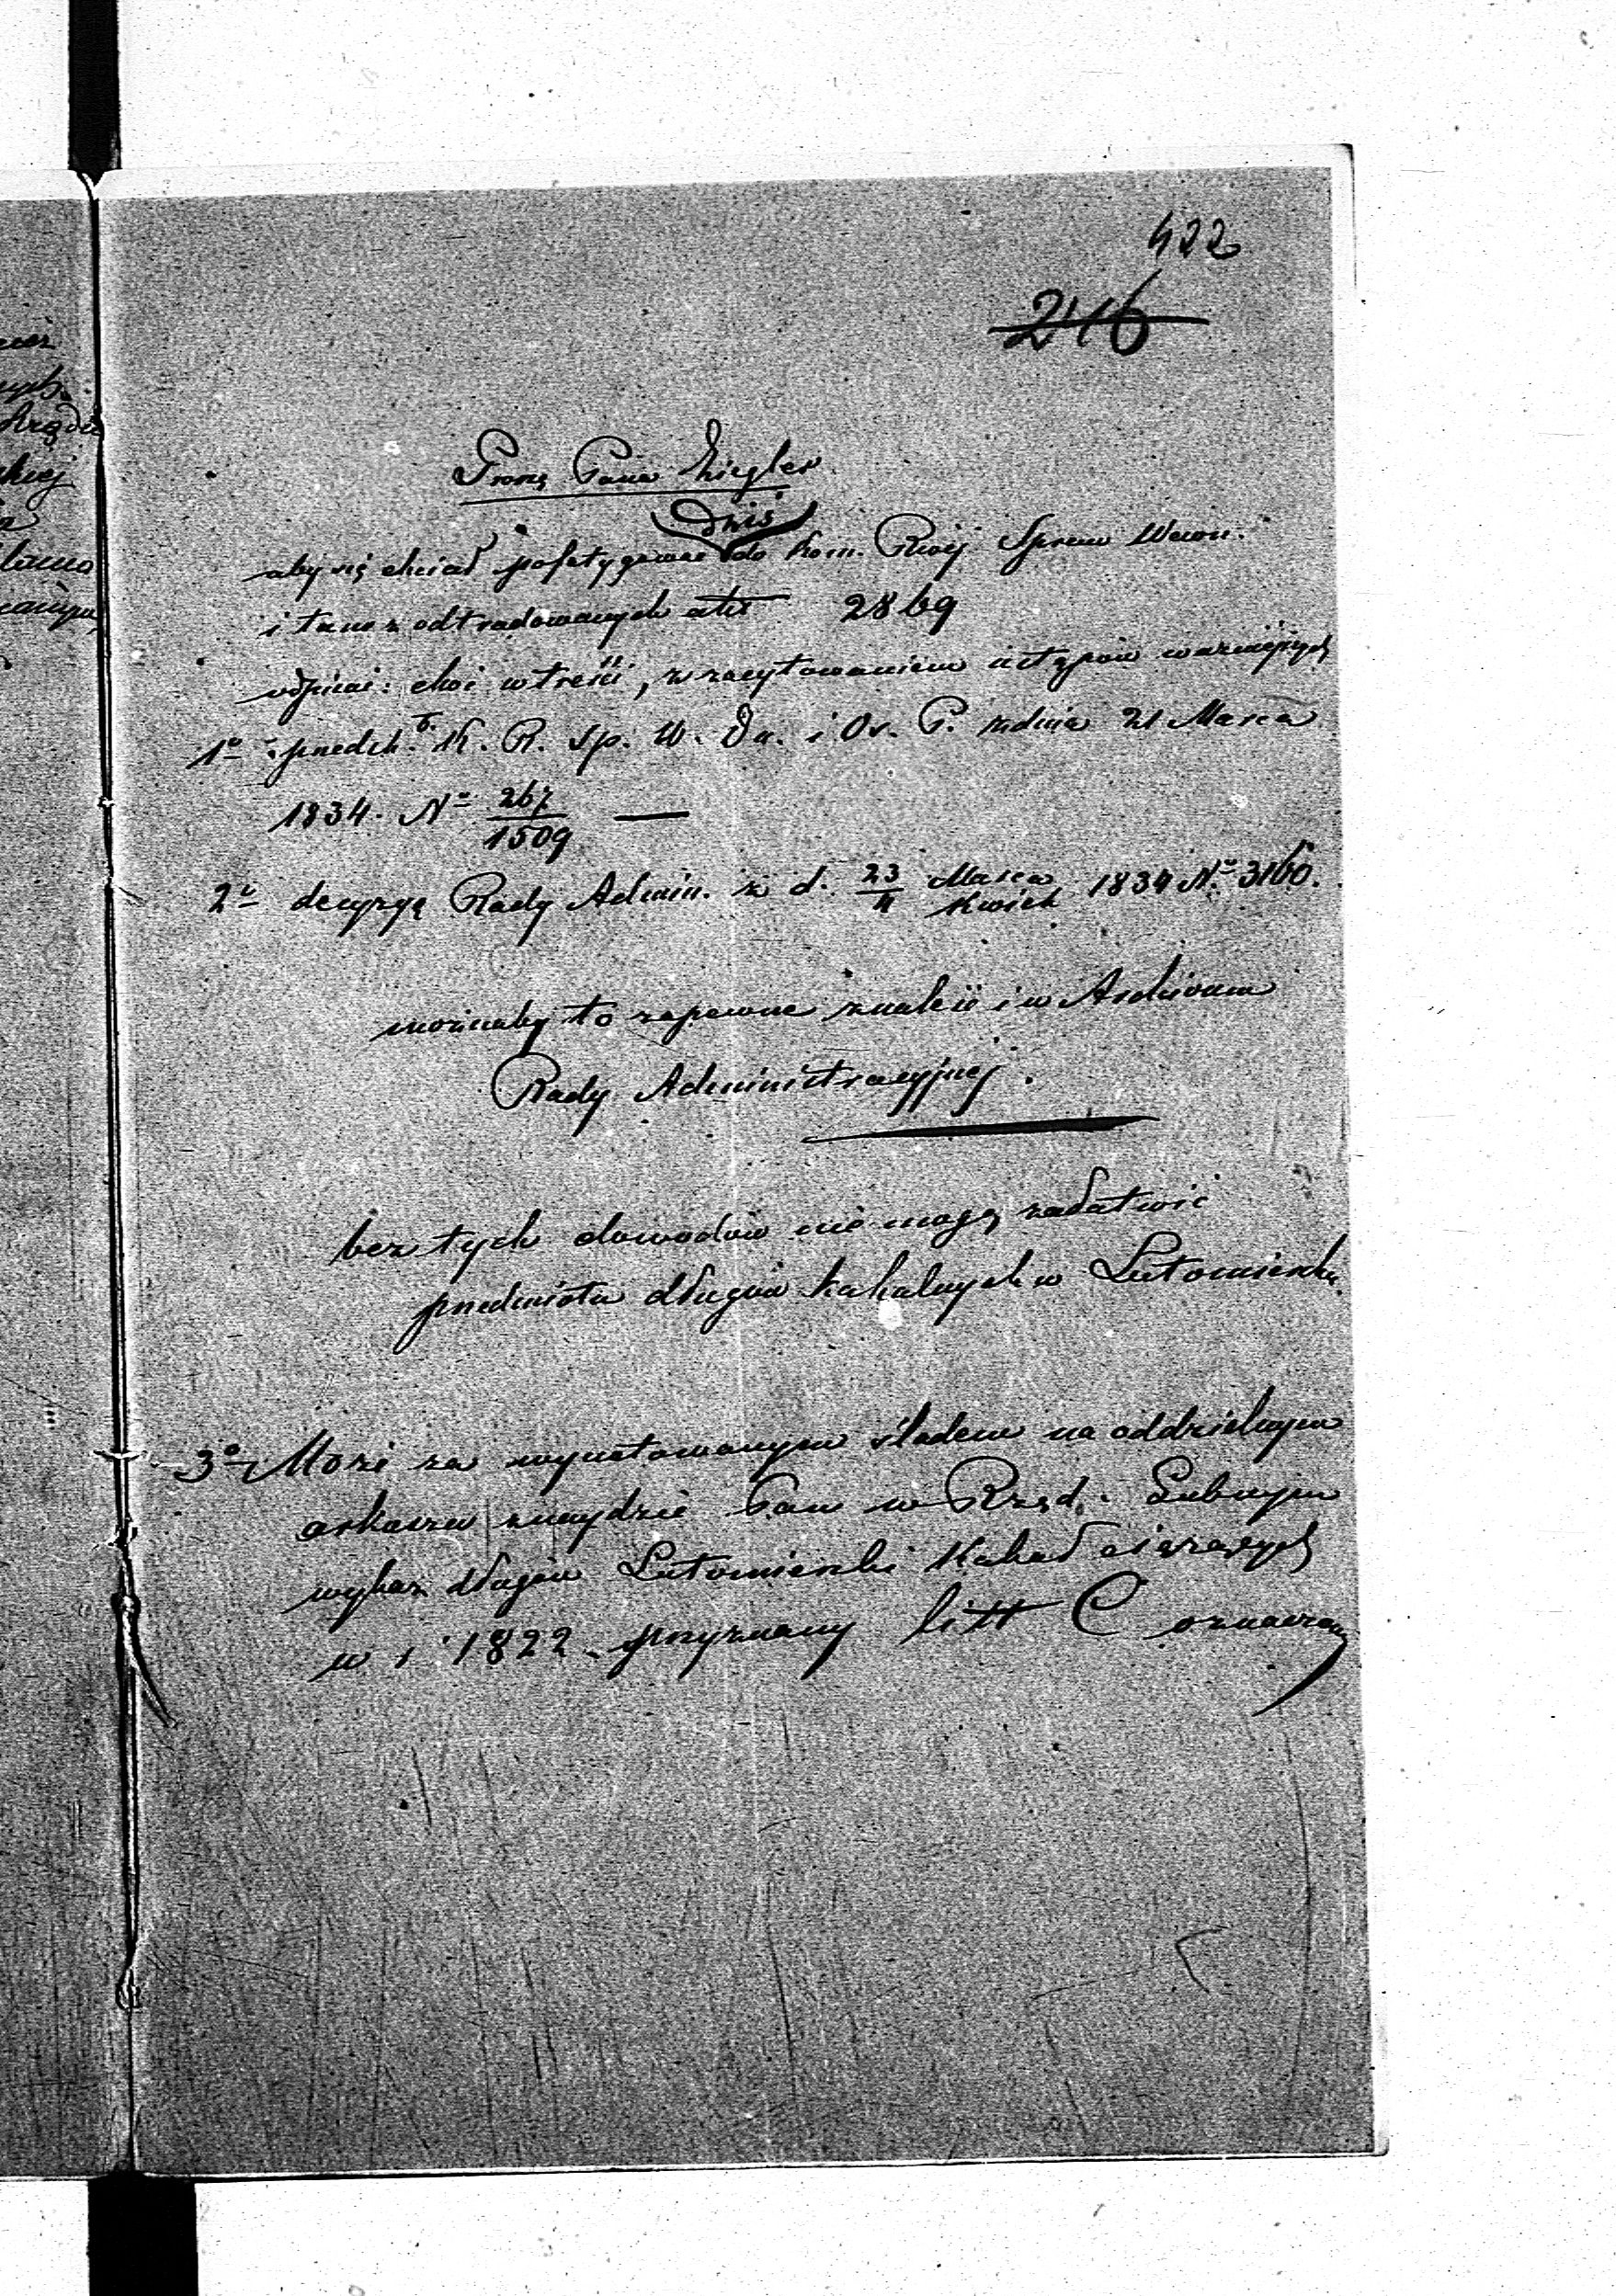 422
246
Proszę Pana Ziegler
Dziś
aby się chciał pofatygować do Kom. Rząj Spraw Wewn.
i tam z odtradowanych akt 2869
odpisać: choć w treści, z zacytowaniem ustępów ważniejszych
1o przedst. K. R. Sp. W. Du. i Ov. P. z dnia 21 Marca
1834. No 267/1509 —
2o decyzyę Rady Admin. z d. 23/4 Marca/Kwiet 1834 No 3160.
możnaby to zapewne znaleść i w Archivum
Rady Administracyjnej.
bez tych dowodów nie mogę załatwić
przedmiotu długów kahalnych w Lutomiersku
3o Może za wynotowanym śladem na oddzielnym
arkuszu znajdzie Pan w Rząd. Gubnym
wykaz długów Lutomierski Kahał ciążących
w r 1822 przyznany litt C oznaczony